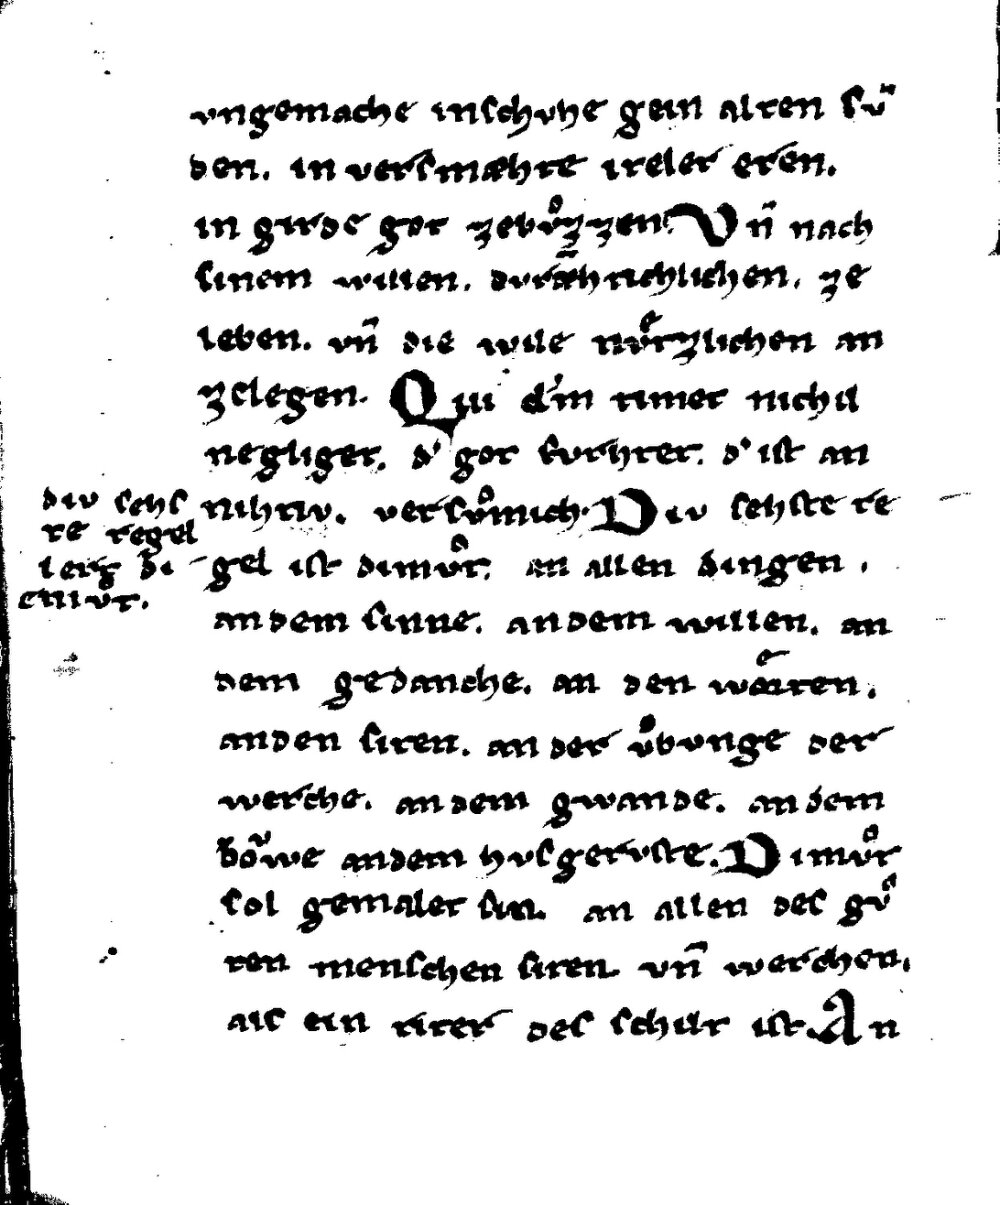 vngemache inſchvhe gein alten ſv̄
den. in verſmæhte iteler eren.
in girde got zebvͦzzen. Vn̄ nach
ſinem willen. durnæhtichlichen. ze
leben. vn̄ die wile nvͤtzlichen an
zelegen. Qui d'm timet nichil
negliget. d' got furhtet. d' iſt an
nihtiv. verſvͦmich. Div ſehſte re
gel iſt dimvͦt. an allen dingen.
an dem ſinne. an dem willen. an
dem gedanche. an den worten.
an den ſiten. an der vͦbvnge der
werche. an dem gwande. an dem
bowe an dem hvſgeruſte. Dimvͦt
ſol gemalet ſin. an allen des gvͦ
ten menſchen ſiten. vn̄ werchen.
als ein riter des ſchilt iſt. An
div ſehſ
te regel
lert di
emvͦt.